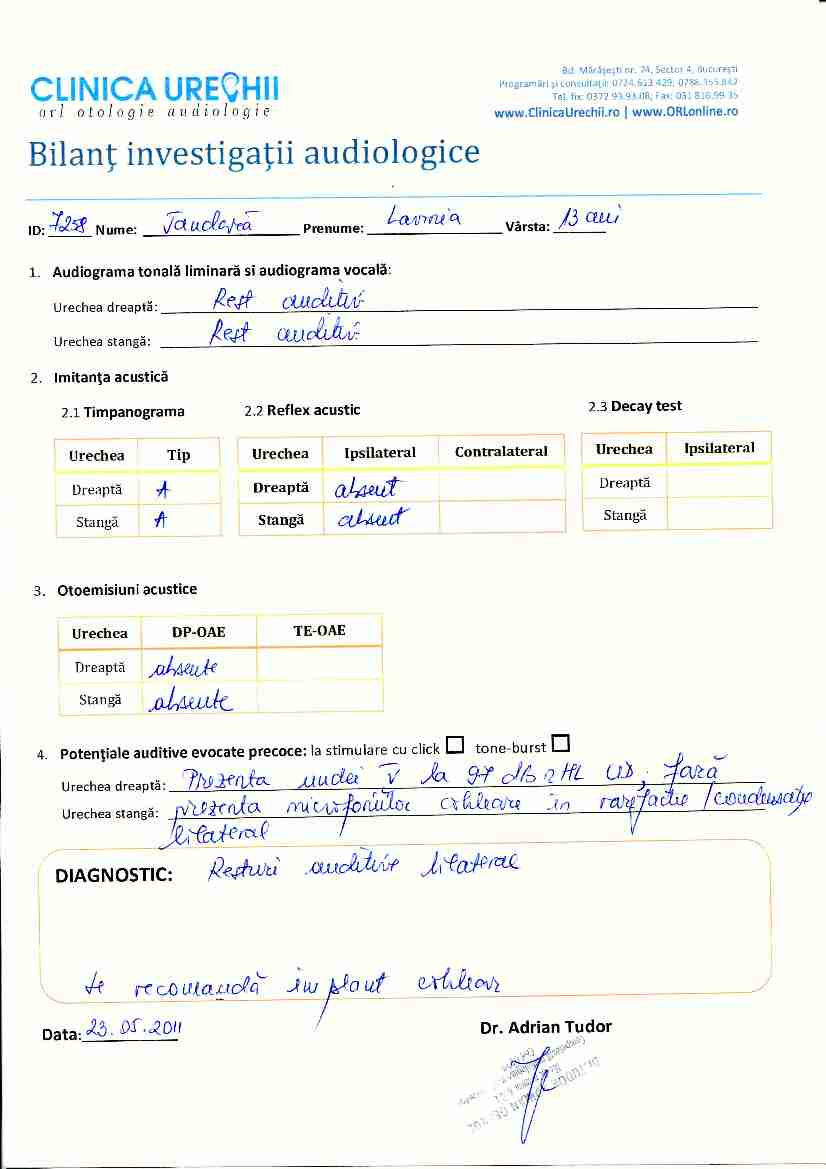 CLINICA URECHII
orl otologie audiologie
Bd. Mărăşeşti nr. 74, Sector 4, Bucureşti
Programări şi consultaţii: 0724.613.429; 0786.355.842
Tel. fix: 0372.93.93.08; Fax: 031.816.99.35
www.ClinicaUrechii.ro | www.ORLonline.ro
Bilanţ investigaţii audiologice
ID: 7258 Nume: Prenume: Vârsta: 13 ani
1. Audiograma tonală liminară si audiograma vocală:
Urechea dreaptă: Rest auditiv
Urechea stangă: Rest auditiv
2. Imitanţa acustică
2.1 Timpanograma 2.2 Reflex acustic 2.3 Decay test
Urechea Tip Urechea Ipsilateral Contralateral Urechea Ipsilateral
Dreaptă A Dreaptă absent Dreaptă
Stangă A Stangă absent Stangă
3. Otoemisiuni acustice
Urechea DP-OAE TE-OAE
Dreaptă absente
Stangă absente
4. Potenţiale auditive evocate precoce: la stimulare cu click tone-burst
Urechea dreaptă: Prezenta undei V la 97 dB nHL UD, fară
Urechea stangă: prezenta microfoniilor cohleare in rarefactie / condensatie
bilateral
DIAGNOSTIC: Resturi auditive bilateral
Se recomandă implant cohlear
Data: 23.05.2011
Dr. Adrian Tudor